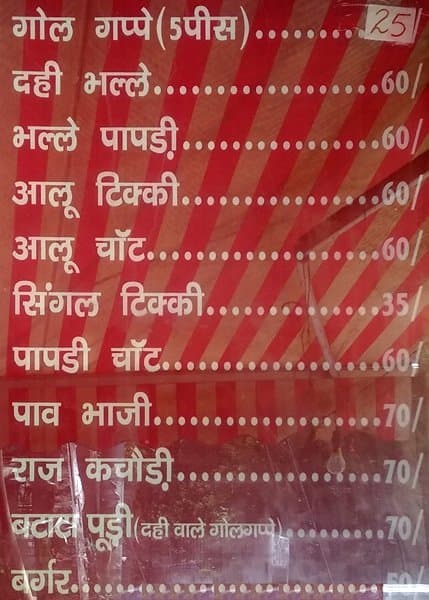 गोल गप्पे (5पीस)............25
दही भल्ले....................60/
भल्ले पापडी़.................60/
आलू टिक्की.................60/
आलू चॉट....................60/
सिंगल टिक्की...............35/
पापडी चॉट...................60/
पाव भाजी....................70/
राज कचौडी़.................70/
बटाटा पूडी़ (दही वाले गोलगप्पे)..........70/
बर्गर...........................50/